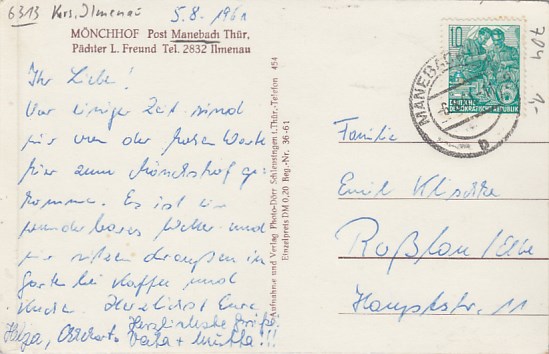 6313 Krs. Ilmenau 5.8.1961
MÖNCHHOF Post Manebach Thür,
Pächter L. Freund Tel. 2832 Ilmenau
Ihr Lieben!
Vor einiger Zeit sind
wir von der hohen Warte
hier zum Mönchshof ge-
kommen. Es ist ein
wunderbares Wetter und
wir sitzen draußen im
Garten bei Kaffee und
Kuchen. Herzlichst Eure
Herzlichste Grüße
Helga, Vata + Mutta!!!
Aufnahme und Verlag Photo-Dörr Schleusingen i. Thür., Telefon 454
Einzelpreis DM 0,20 Beg.-Nr. 36-61
10
DEUTSCHE
DEMOKRATISCHE REPUBLIK
MANEBACH
704 1,-
Familie
Emil Klischke
Roßlau/Elbe
Hauptstr. 11